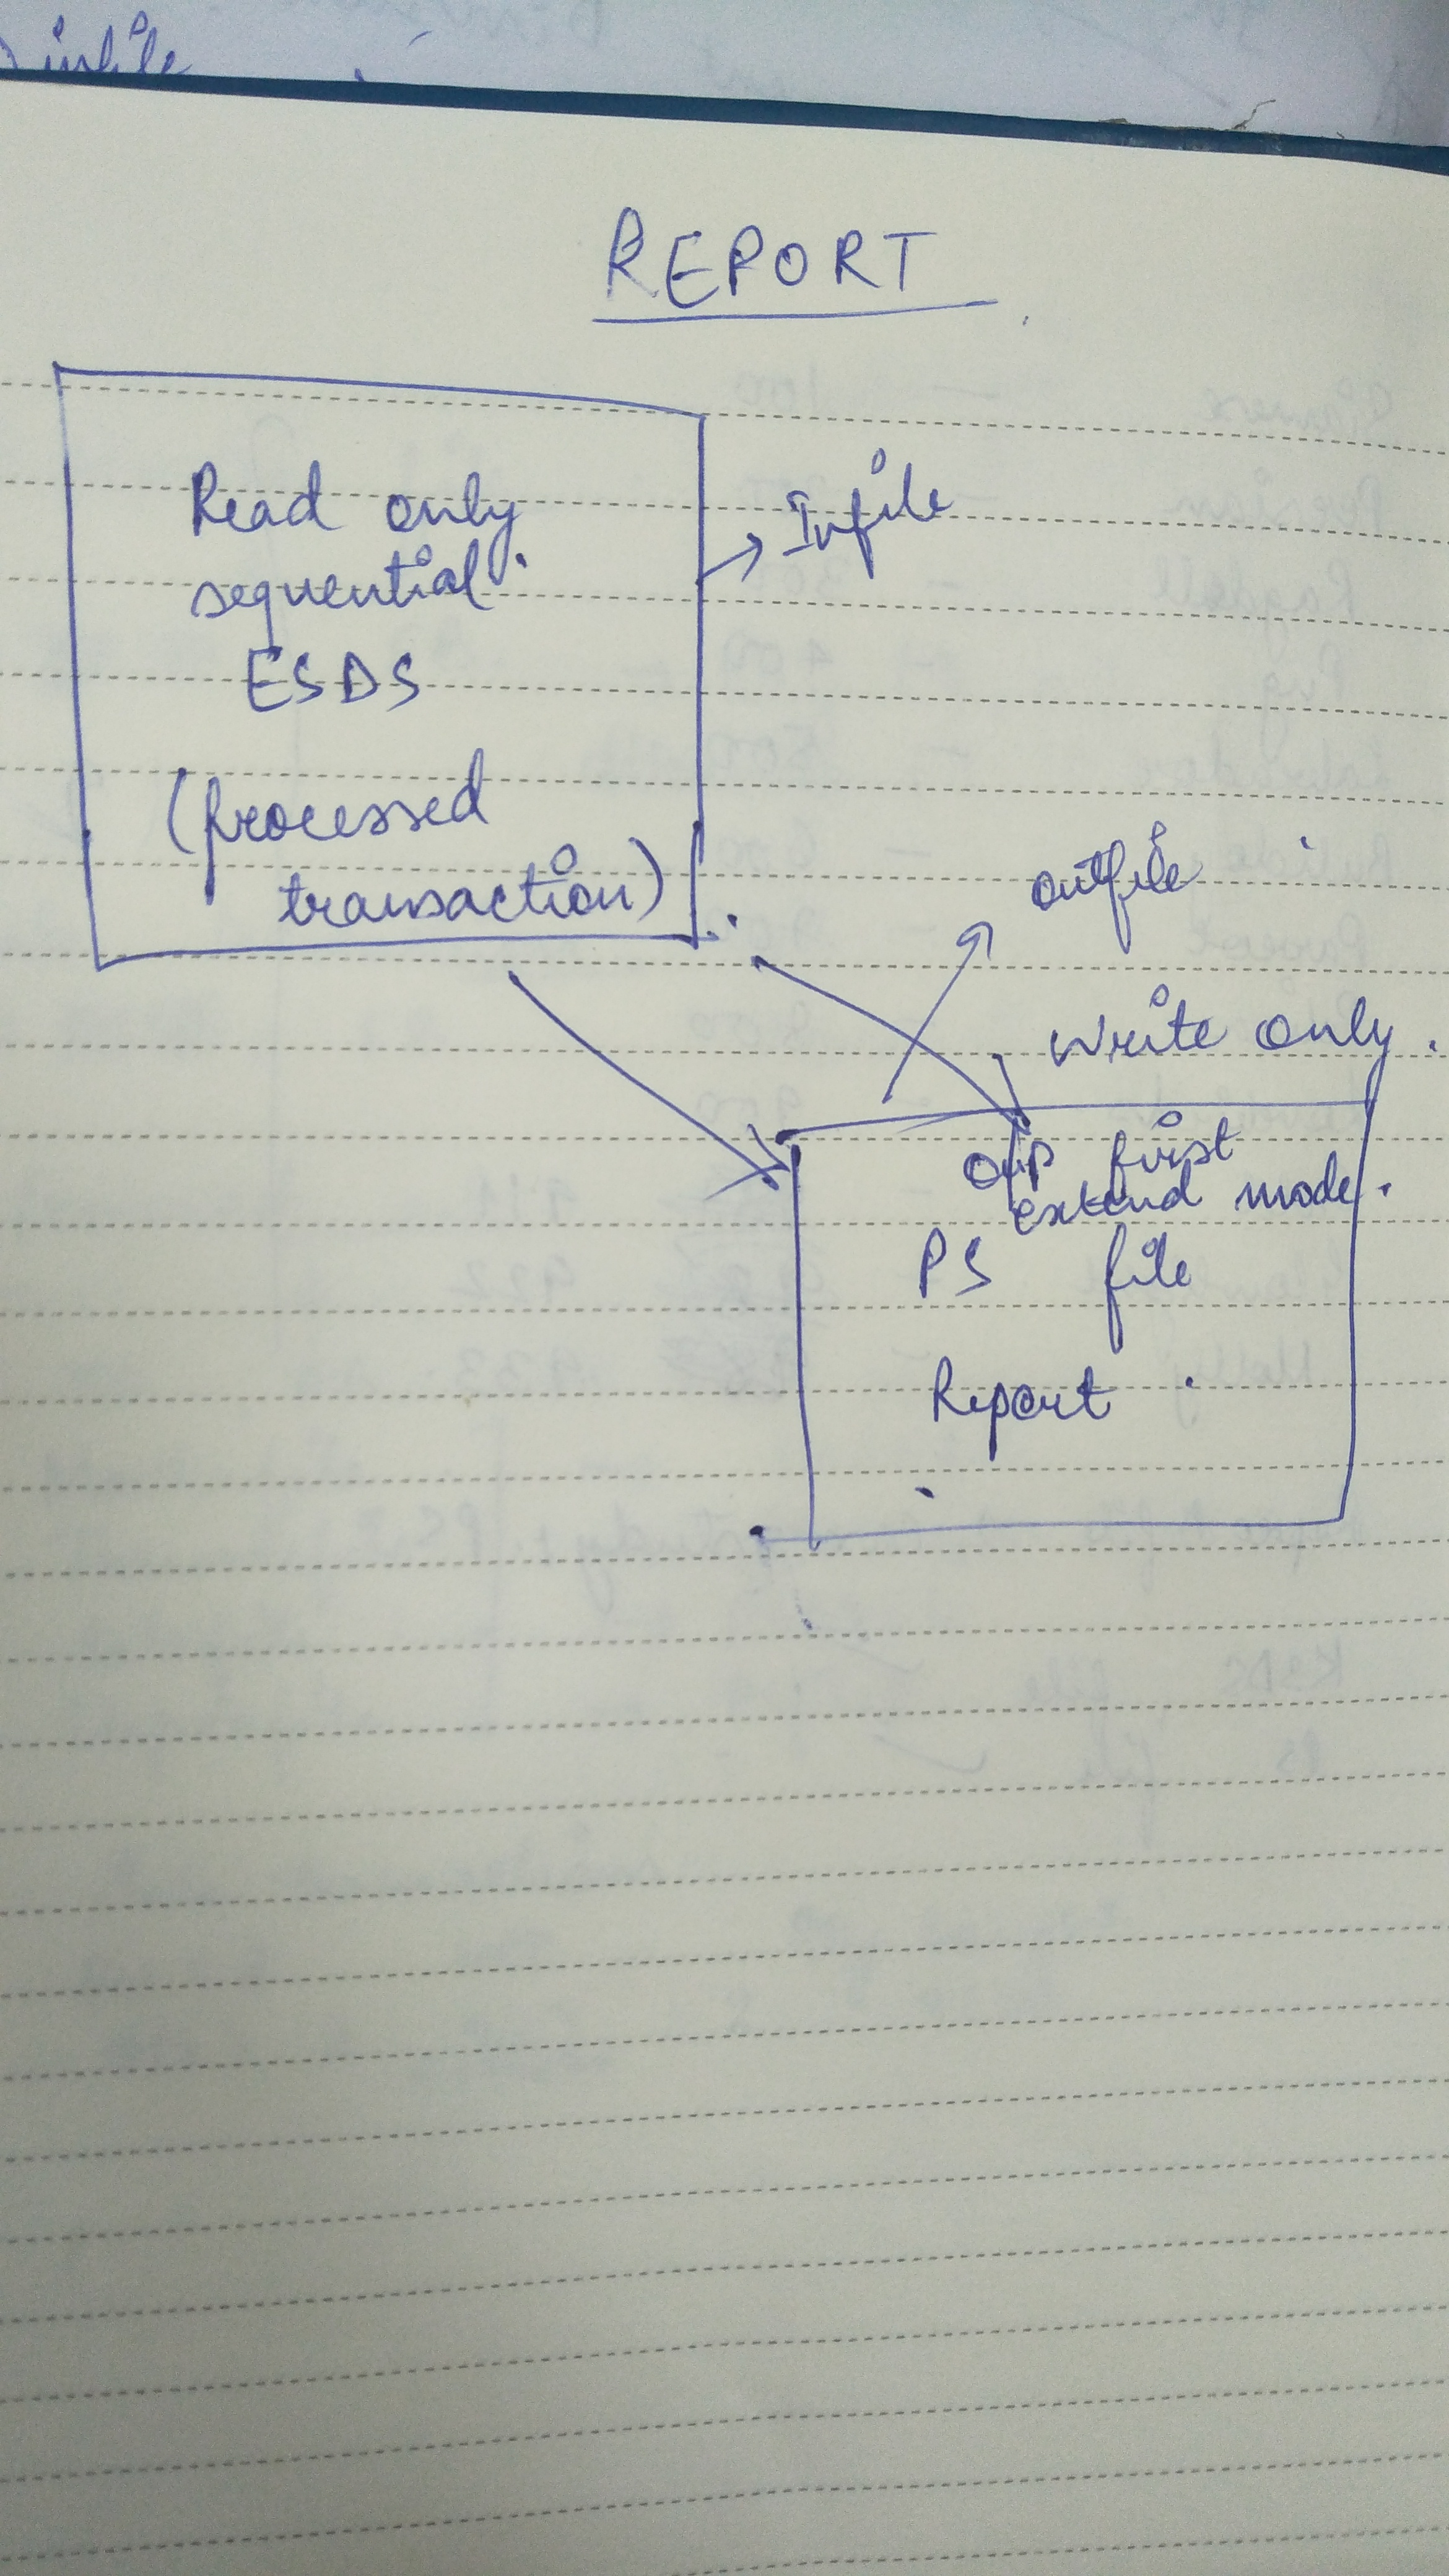 infile
REPORT
Read only
sequential
ESDS
(processed
transaction)
Infile
outfile
Write only.
O/P first
extend mode.
PS file
Report